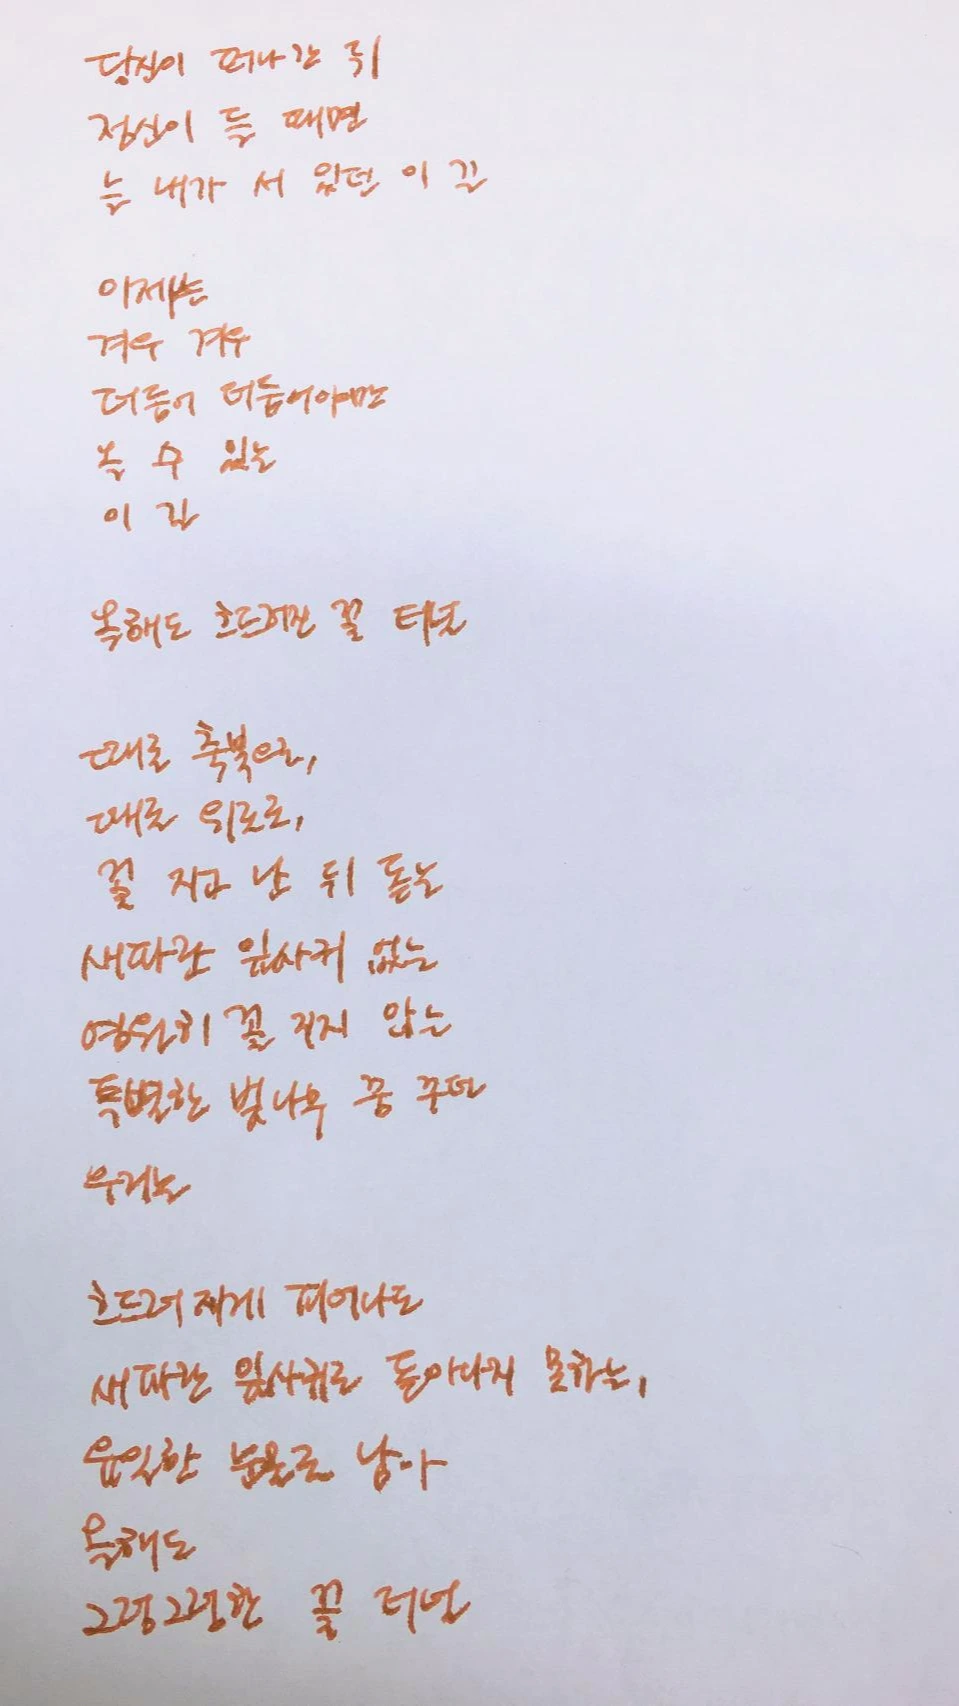 당신이 떠나간 뒤
정신이 들 때면
늘 내가 서 있던 이 길
이제는
겨우 겨우
더듬어 더듬어야만
올 수 있는
이 길
올해도 흐드러진 꽃 터널
때로 축복으로,
때로 위로로,
꽃 지고 난 뒤 돋는
새파란 잎사귀 없는
영원히 꽃 지지 않는
특별한 벚나무 꿈 꾸던
우리는
흐드러지게 피어나도
새파란 잎사귀로 돋아나지 못하는,
유일한 분홀로 남아
올해도
그렁그렁한 꽃 터널